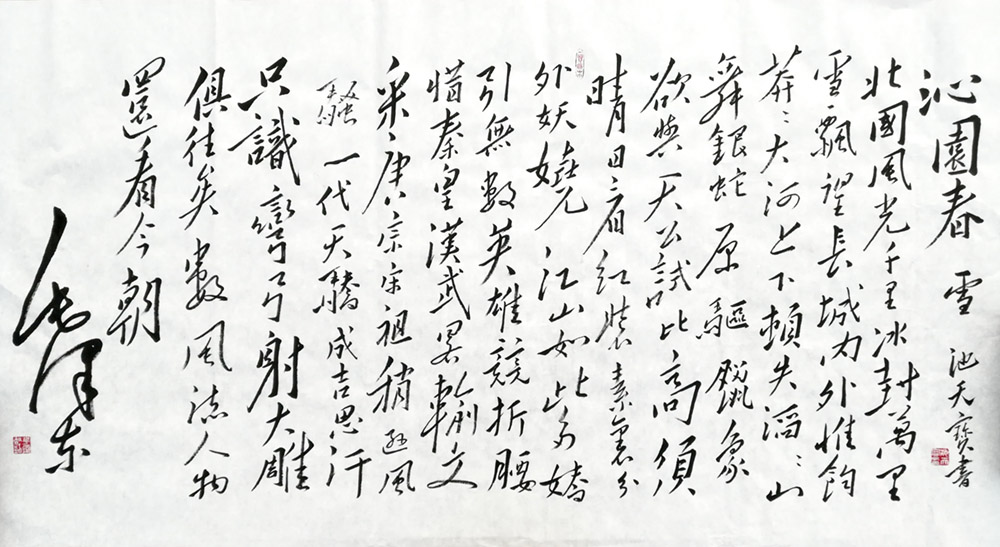 沁園春 雪 池天寶書
北國風光千里冰封萬里
雪飄望長城内外惟餘
莽〻大河上下頓失滔〻山
舞銀蛇原驅臘象
欲與天公試比高須
晴日看紅裝素裹分
外妖嬈江山如此多嬌
引無數英雄競折腰
惜秦皇漢武略輸文
采唐宗宋祖稍遜風
騷一代天驕成吉思汗
只識彎弓射大雕
俱往矣數風流人物
還看今朝
毛澤東